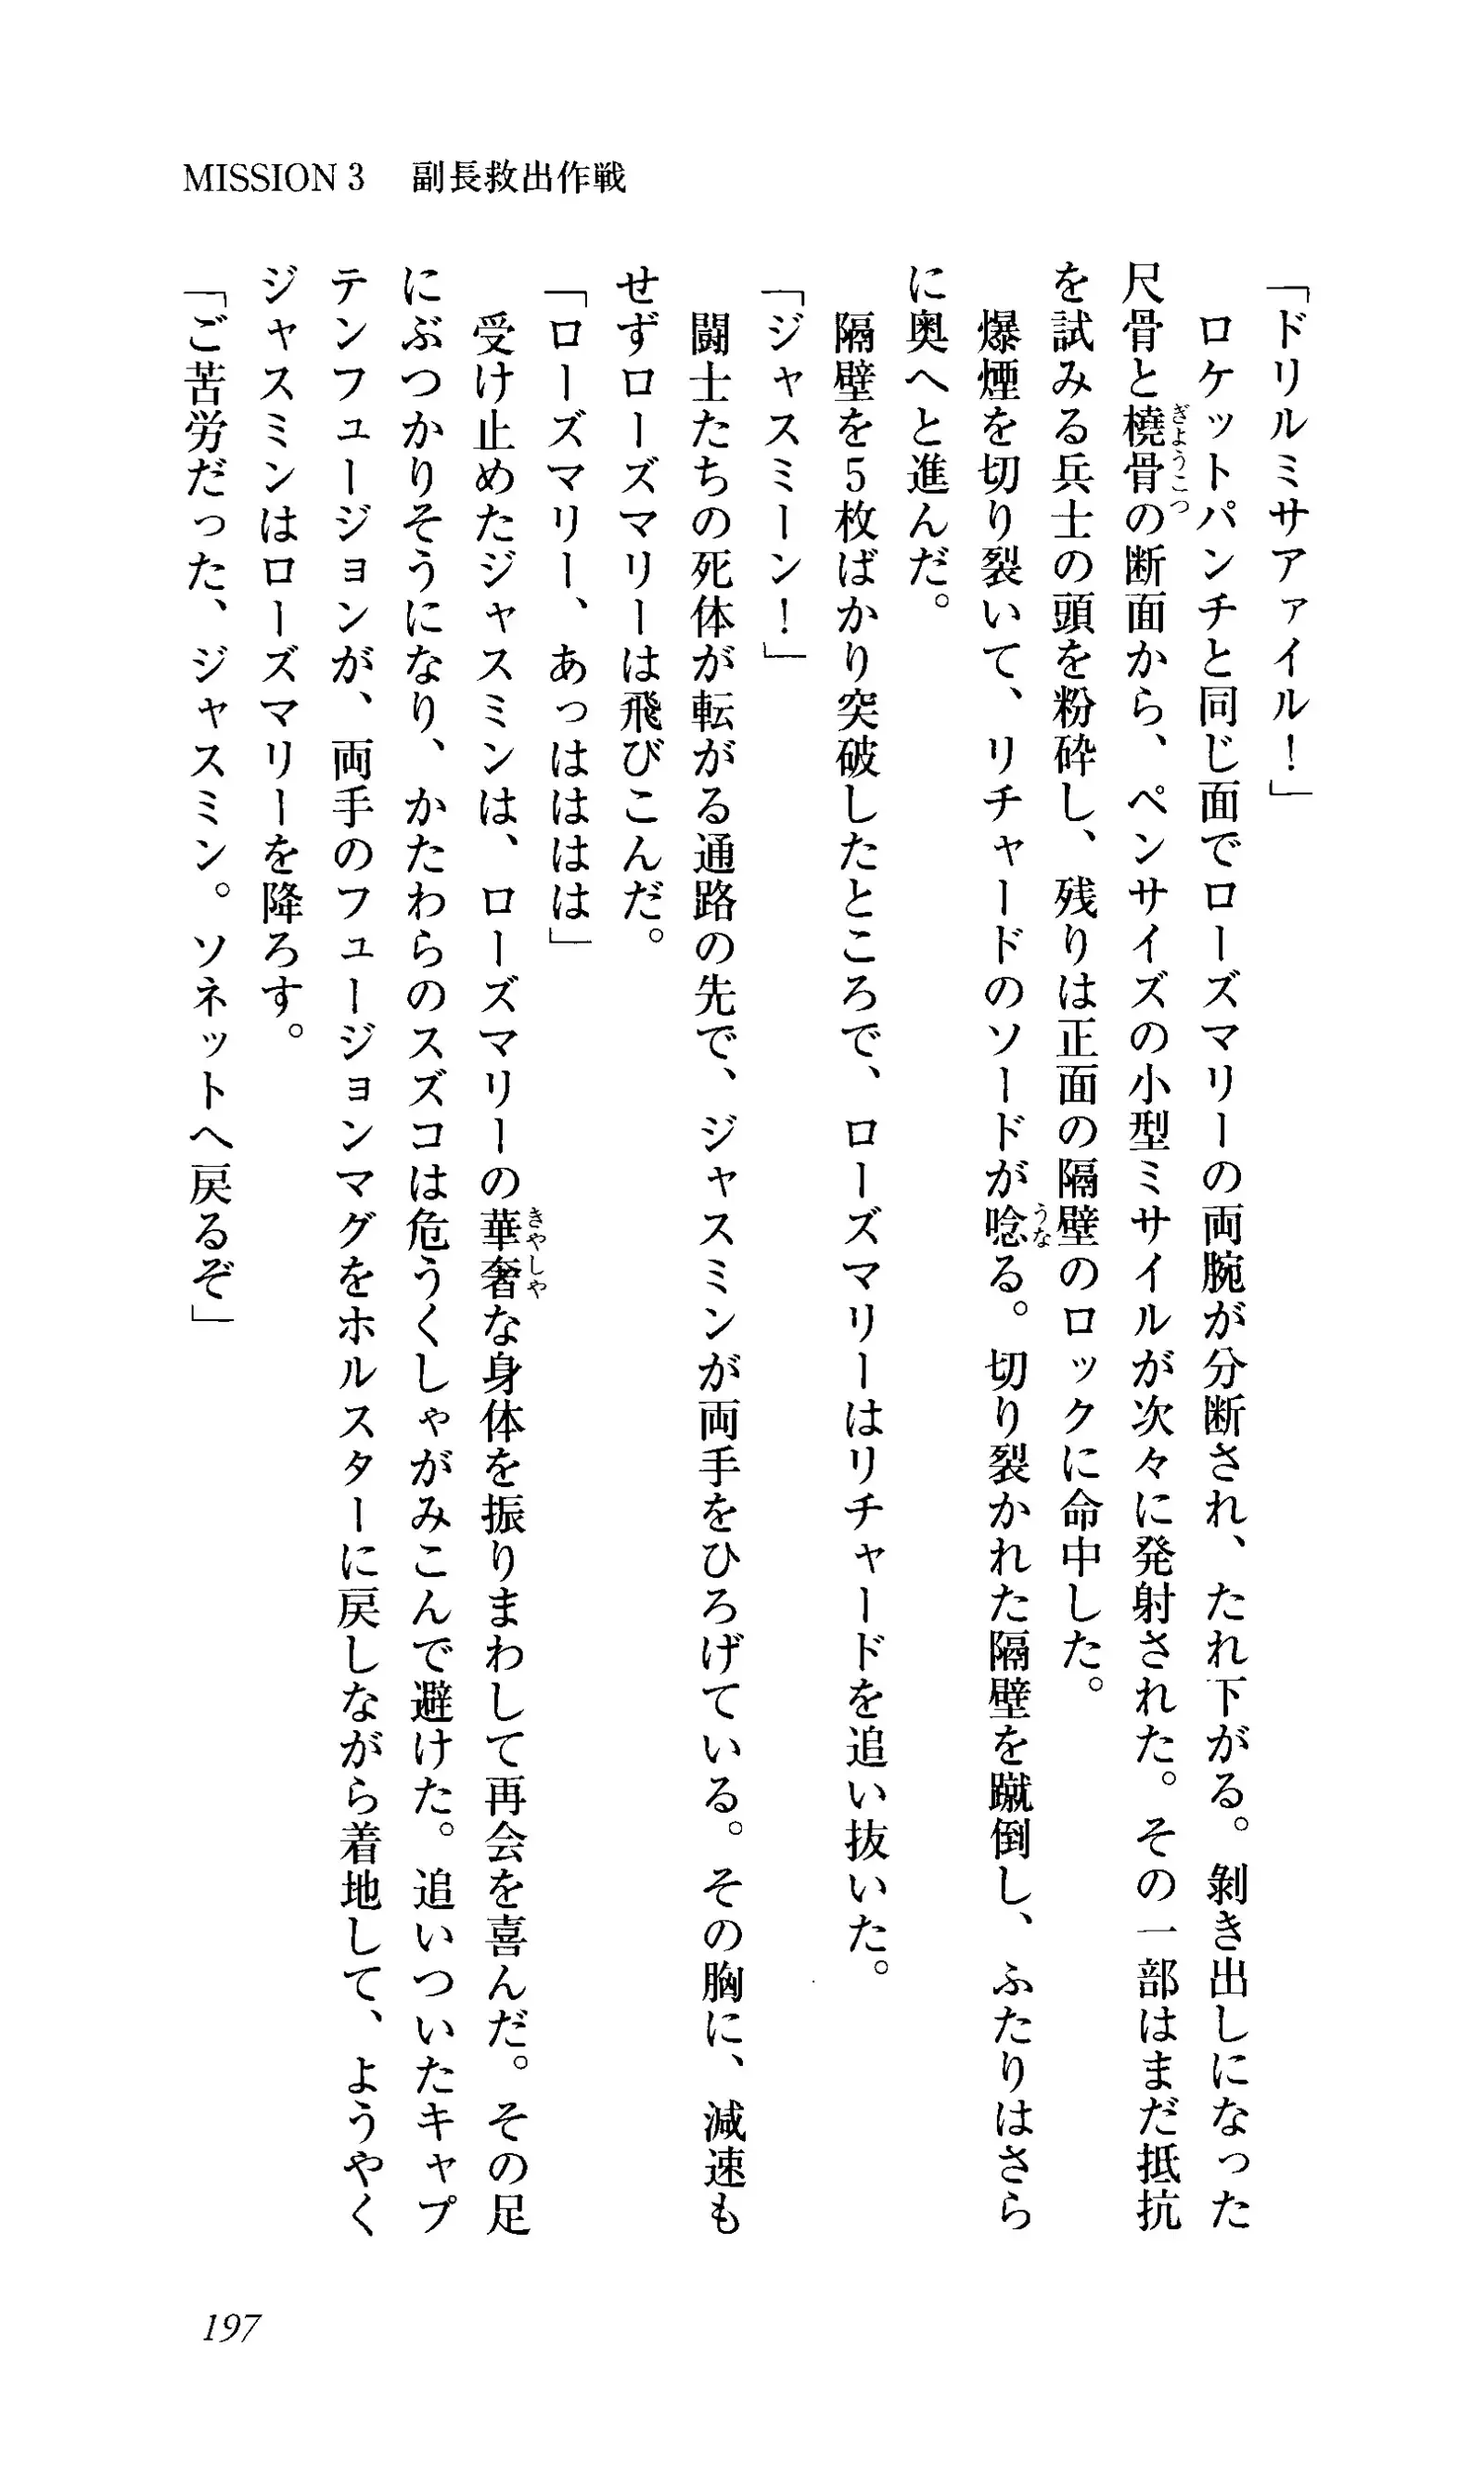 MISSION 3 副長救出作戦
「ドリルミサアァイル！」
　ロケットパンチと同じ面でローズマリーの両腕が分断され、たれ下がる。剝き出しになった
尺骨と橈骨の断面から、ペンサイズの小型ミサイルが次々に発射された。その一部はまだ抵抗
を試みる兵士の頭を粉砕し、残りは正面の隔壁のロックに命中した。
　爆煙を切り裂いて、リチャードのソードが唸る。切り裂かれた隔壁を蹴倒し、ふたりはさら
に奥へと進んだ。
　隔壁を5枚ばかり突破したところで、ローズマリーはリチャードを追い抜いた。
「ジャスミーン！」
　闘士たちの死体が転がる通路の先で、ジャスミンが両手をひろげている。その胸に、減速も
せずローズマリーは飛びこんだ。
「ローズマリー、あっはははは」
　受け止めたジャスミンは、ローズマリーの華奢な身体を振りまわして再会を喜んだ。その足
にぶつかりそうになり、かたわらのスズコは危うくしゃがみこんで避けた。追いついたキャプ
テンフュージョンが、両手のフュージョンマグをホルスターに戻しながら着地して、ようやく
ジャスミンはローズマリーを降ろす。
「ご苦労だった、ジャスミン。ソネットへ戻るぞ」
ぎようこつ
うな
きやしや
197